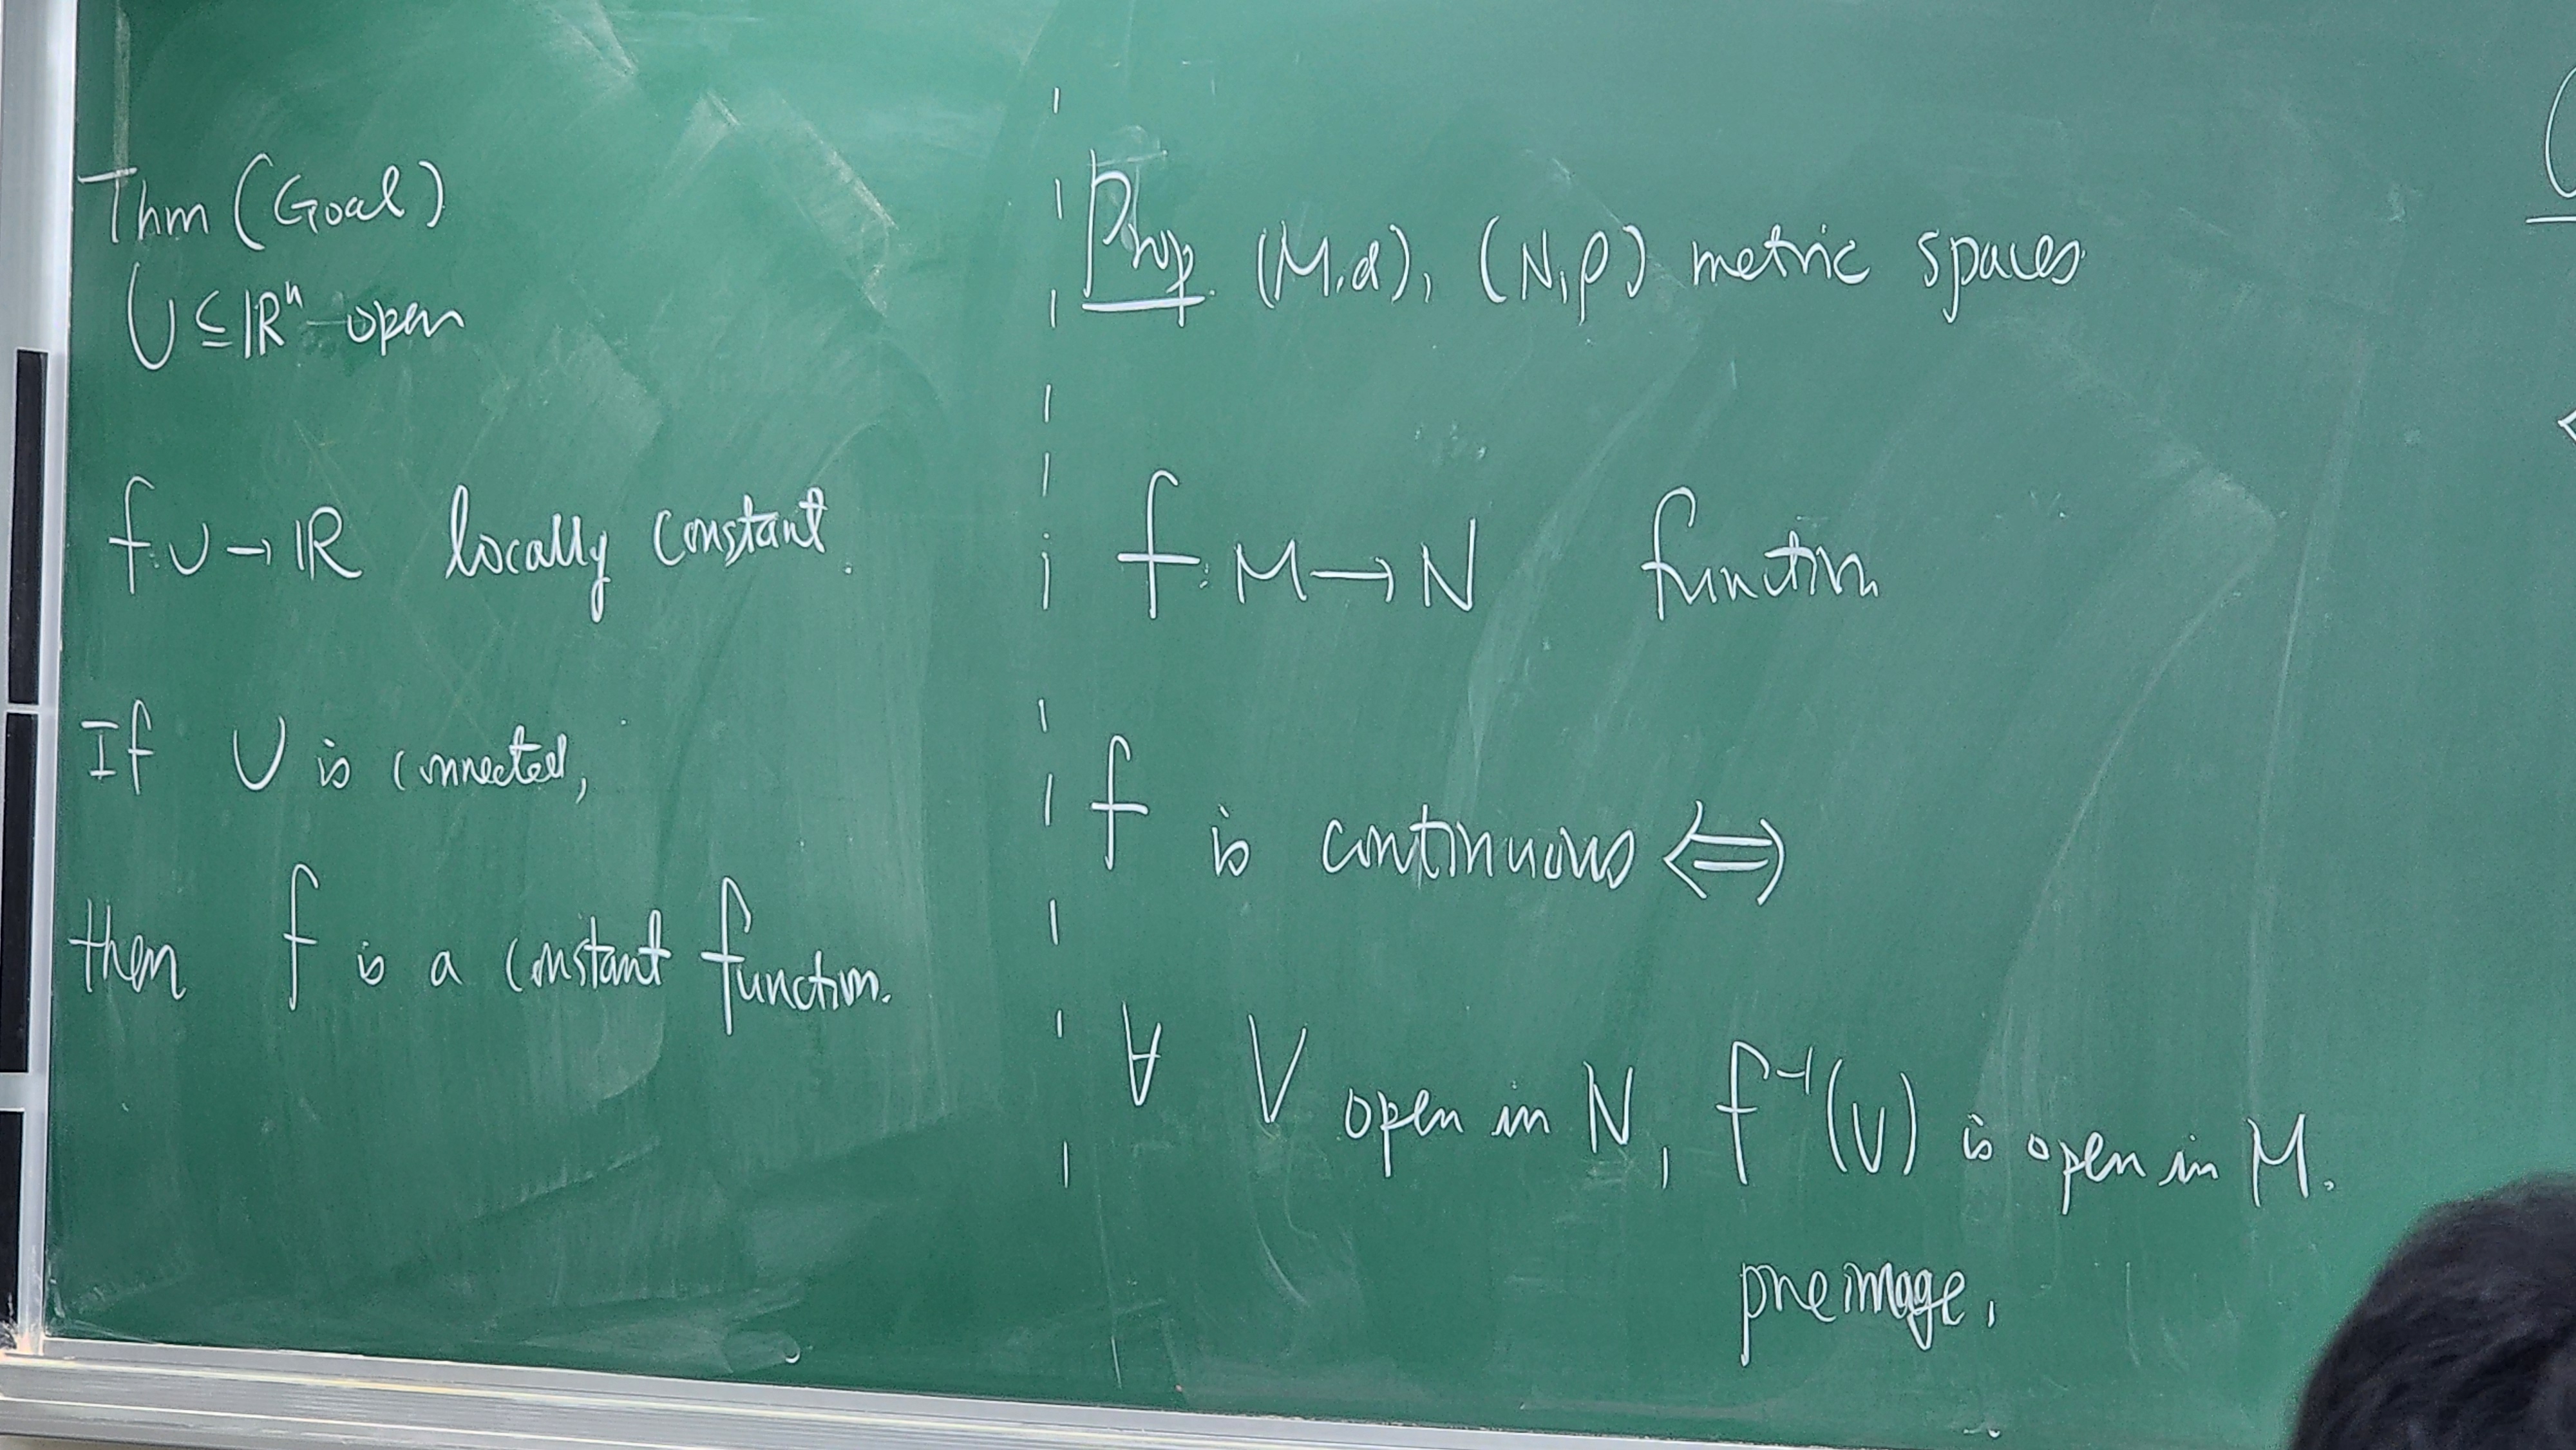 Thm (Goal)
U ⊆ ℝⁿ open
f: U → ℝ locally constant.
If U is connected,
then f is a constant function.
Prop. (M,d), (N,ρ) metric spaces
f: M → N function
f is continuous ⟺
∀ V open in N, f⁻¹(V) is open in M.
preimage.